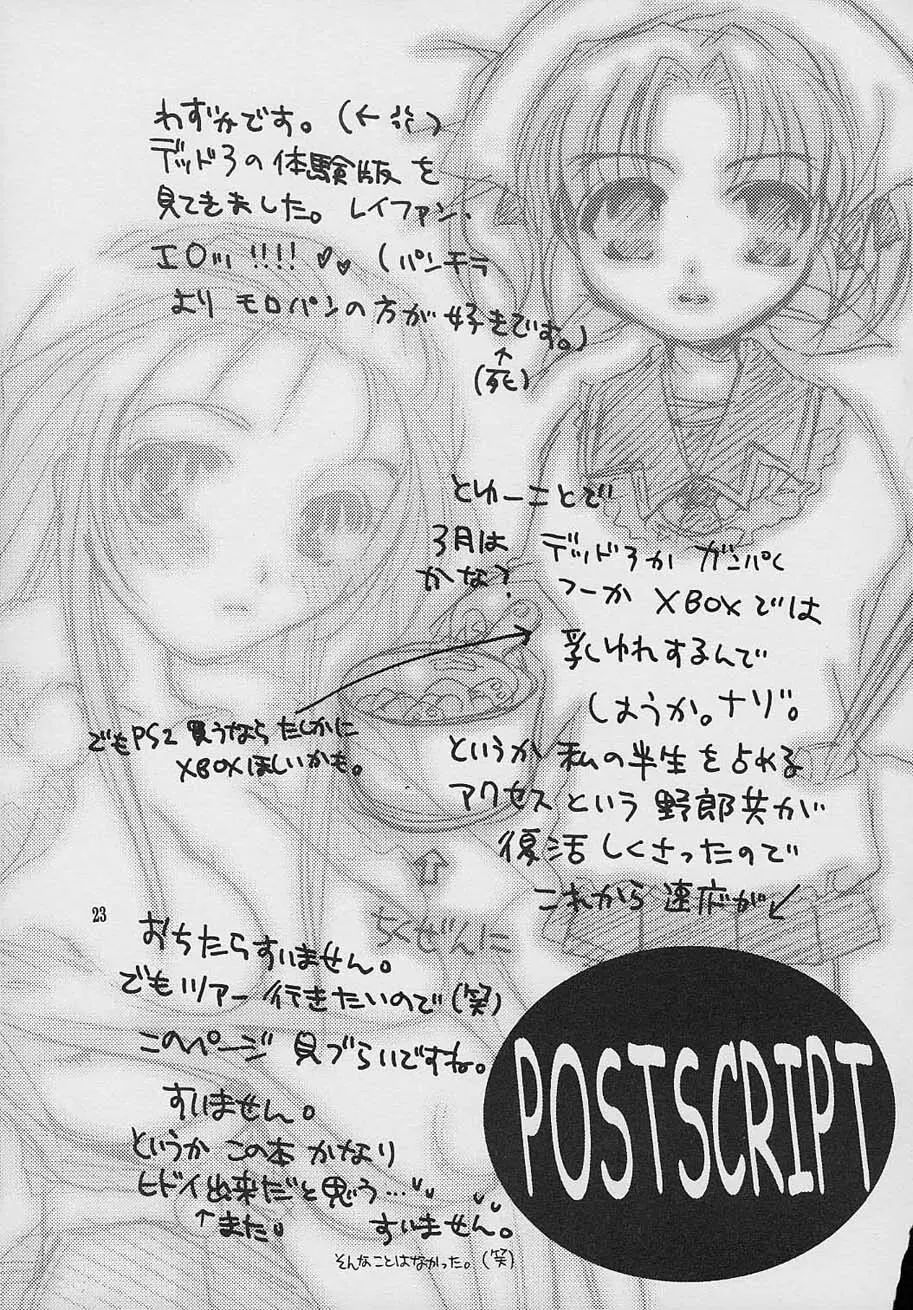 わずかです。(←
デッド3の体験版を
見てきました。レイファン、
エロッ!!!!♥♥(パンチラ
よりモロパンの方が好きです。)
↑
(死)
とゆーことで
3月は デッド3か ガンパく
かな? つーか XBOXでは
乳しゆれするんで
しょうか。ナゾ。
でもPS2買うならたしかに
XBOXほしいかも。
というか私の半生を占める
アクセスという野郎共が
復活しくさったので
これから速応が↙
ちくぜんに
23
おちたらすいません。
でもツアー行きたいので(笑)
このページ見づらいですね。
すいません。
というかこの本かなり
ヒドイ出来だと思う…
↑また すいません。
そんなことはなかった。(笑)
POSTSCRIPT